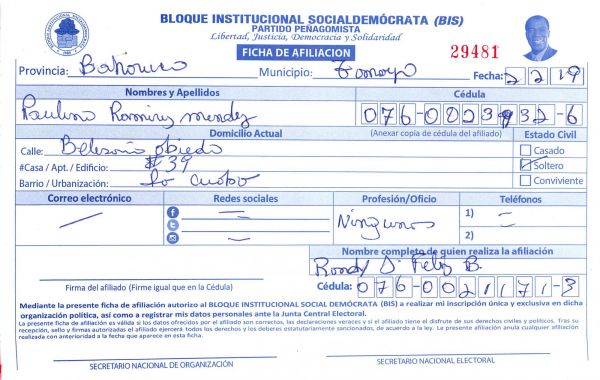 BLOQUE INSTITUCIONAL SOCIALDEMÓCRATA (BIS)
PARTIDO PEÑAGOMISTA
Libertad, Justicia, Democracia y Solidaridad
FICHA DE AFILIACION 29481
Provincia: Bahoruco Municipio: Tamayo Fecha: 2 2 19
Nombres y Apellidos Cédula
Paulino Ramirez Mendez 076-0023932-6
Domicilio Actual (Anexar copia de cédula del afiliado) Estado Civil
Calle: Casado
#Casa / Apt. / Edificio: #39 Soltero
Barrio / Urbanización: Conviviente
Correo electrónico Redes sociales Profesión/Oficio Teléfonos
Ningunos 1)
2)
Nombre completo de quien realiza la afiliación
Rondy D. Feliz B.
Firma del afiliado (Firme igual que en la Cédula) Cédula: 076-0021171-3
Mediante la presente ficha de afiliación autorizo al BLOQUE INSTITUCIONAL SOCIAL DEMÓCRATA (BIS) a realizar mi inscripción única y exclusiva en dicha
organización política, así como a registrar mis datos personales ante la Junta Central Electoral.
La presente ficha de afiliación es válida si los datos ofrecidos por el afiliado son correctos, las declaraciones veraces y si el afiliado tiene el disfrute de sus derechos civiles y políticos. Tras su
recepción, sello y firmas autorizadas el afiliado ejercerá todos los derechos y los deberes estatutariamente sancionados, de acuerdo a la ley. La presente afiliación anula cualquier afiliación
realizada con anterioridad a la fecha que aparece en esta ficha.
SECRETARIO NACIONAL DE ORGANIZACIÓN SECRETARIO NACIONAL ELECTORAL